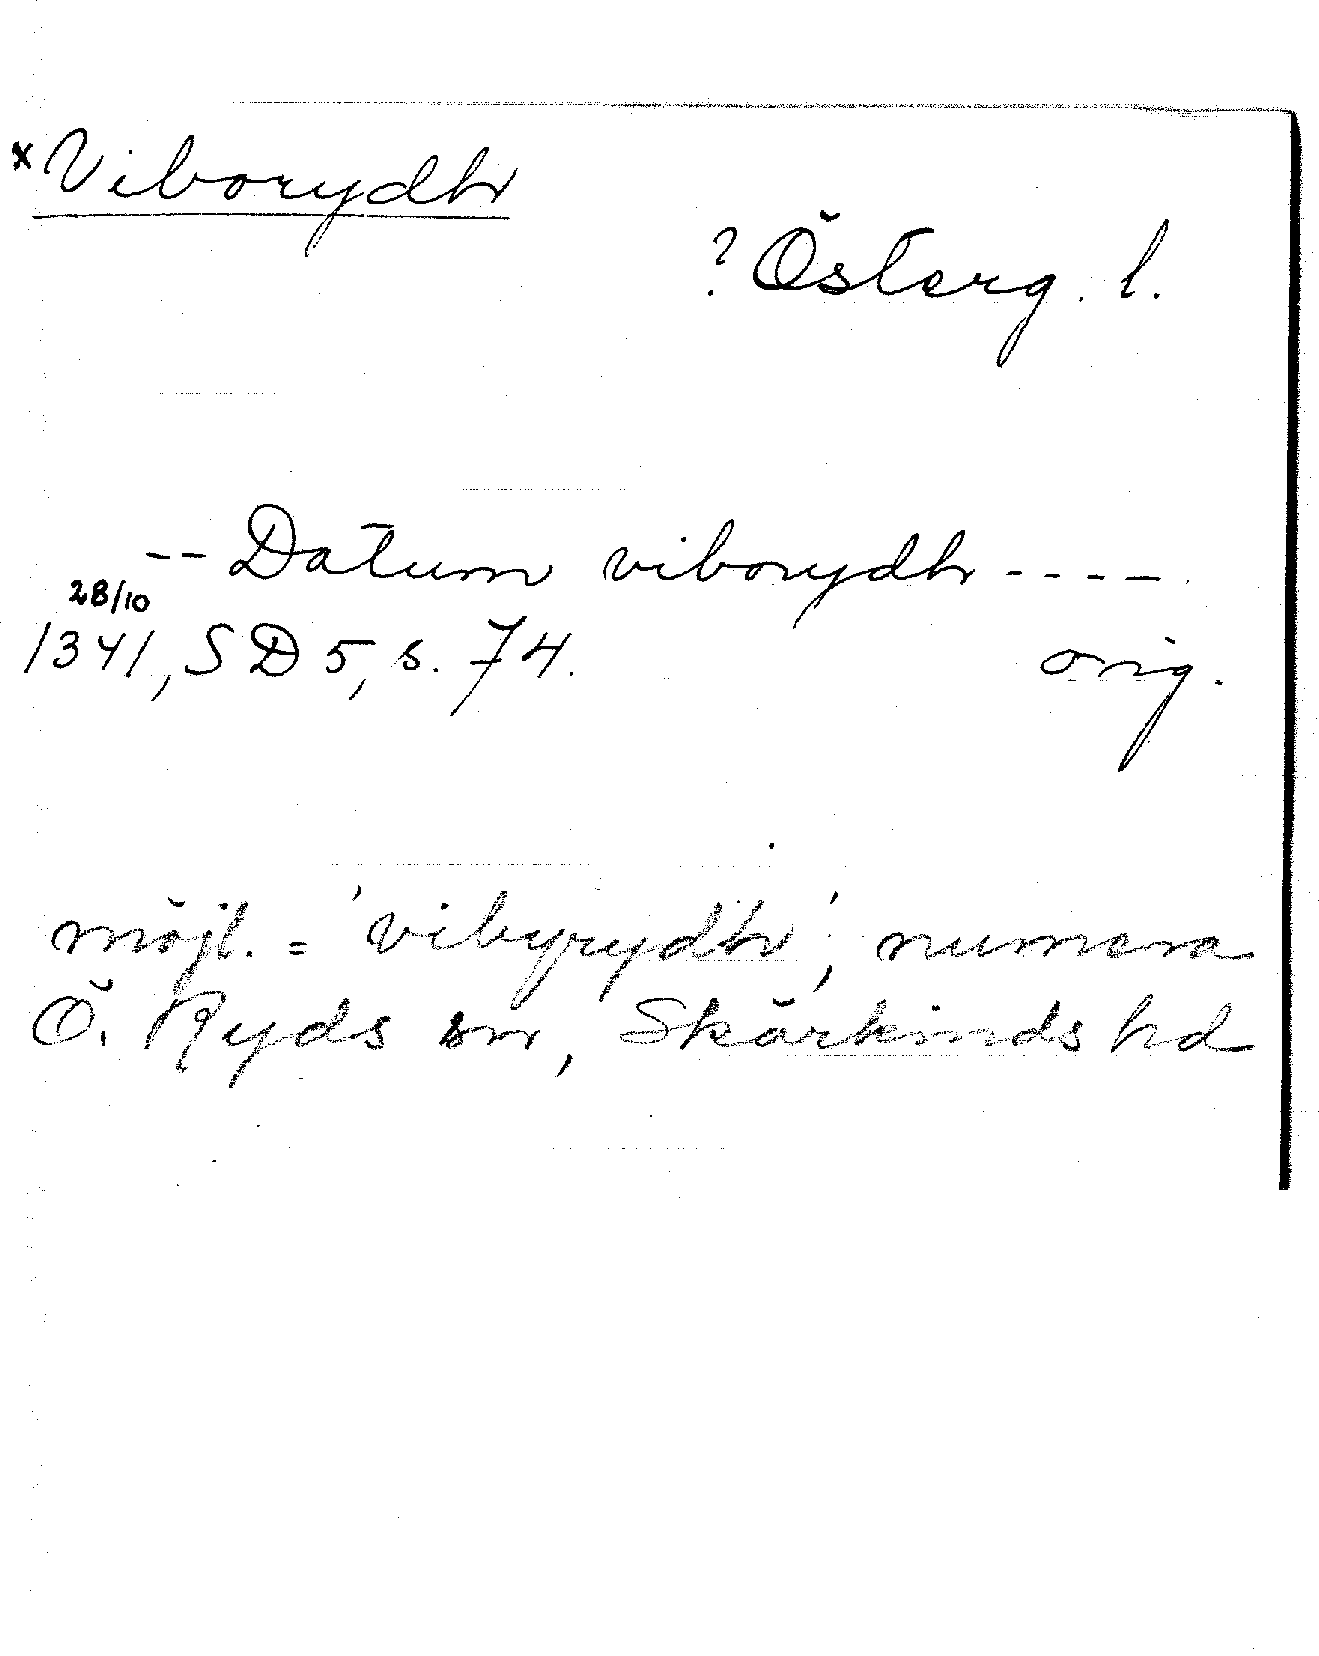 x Viborydh
? Österg. l.
-- Datum viborydh ----
28/10
1341, SD 5, s. 74. orig.
möjl. = 'vibyrydh', numera
Ö. Ryds sn, Skärkinds hd